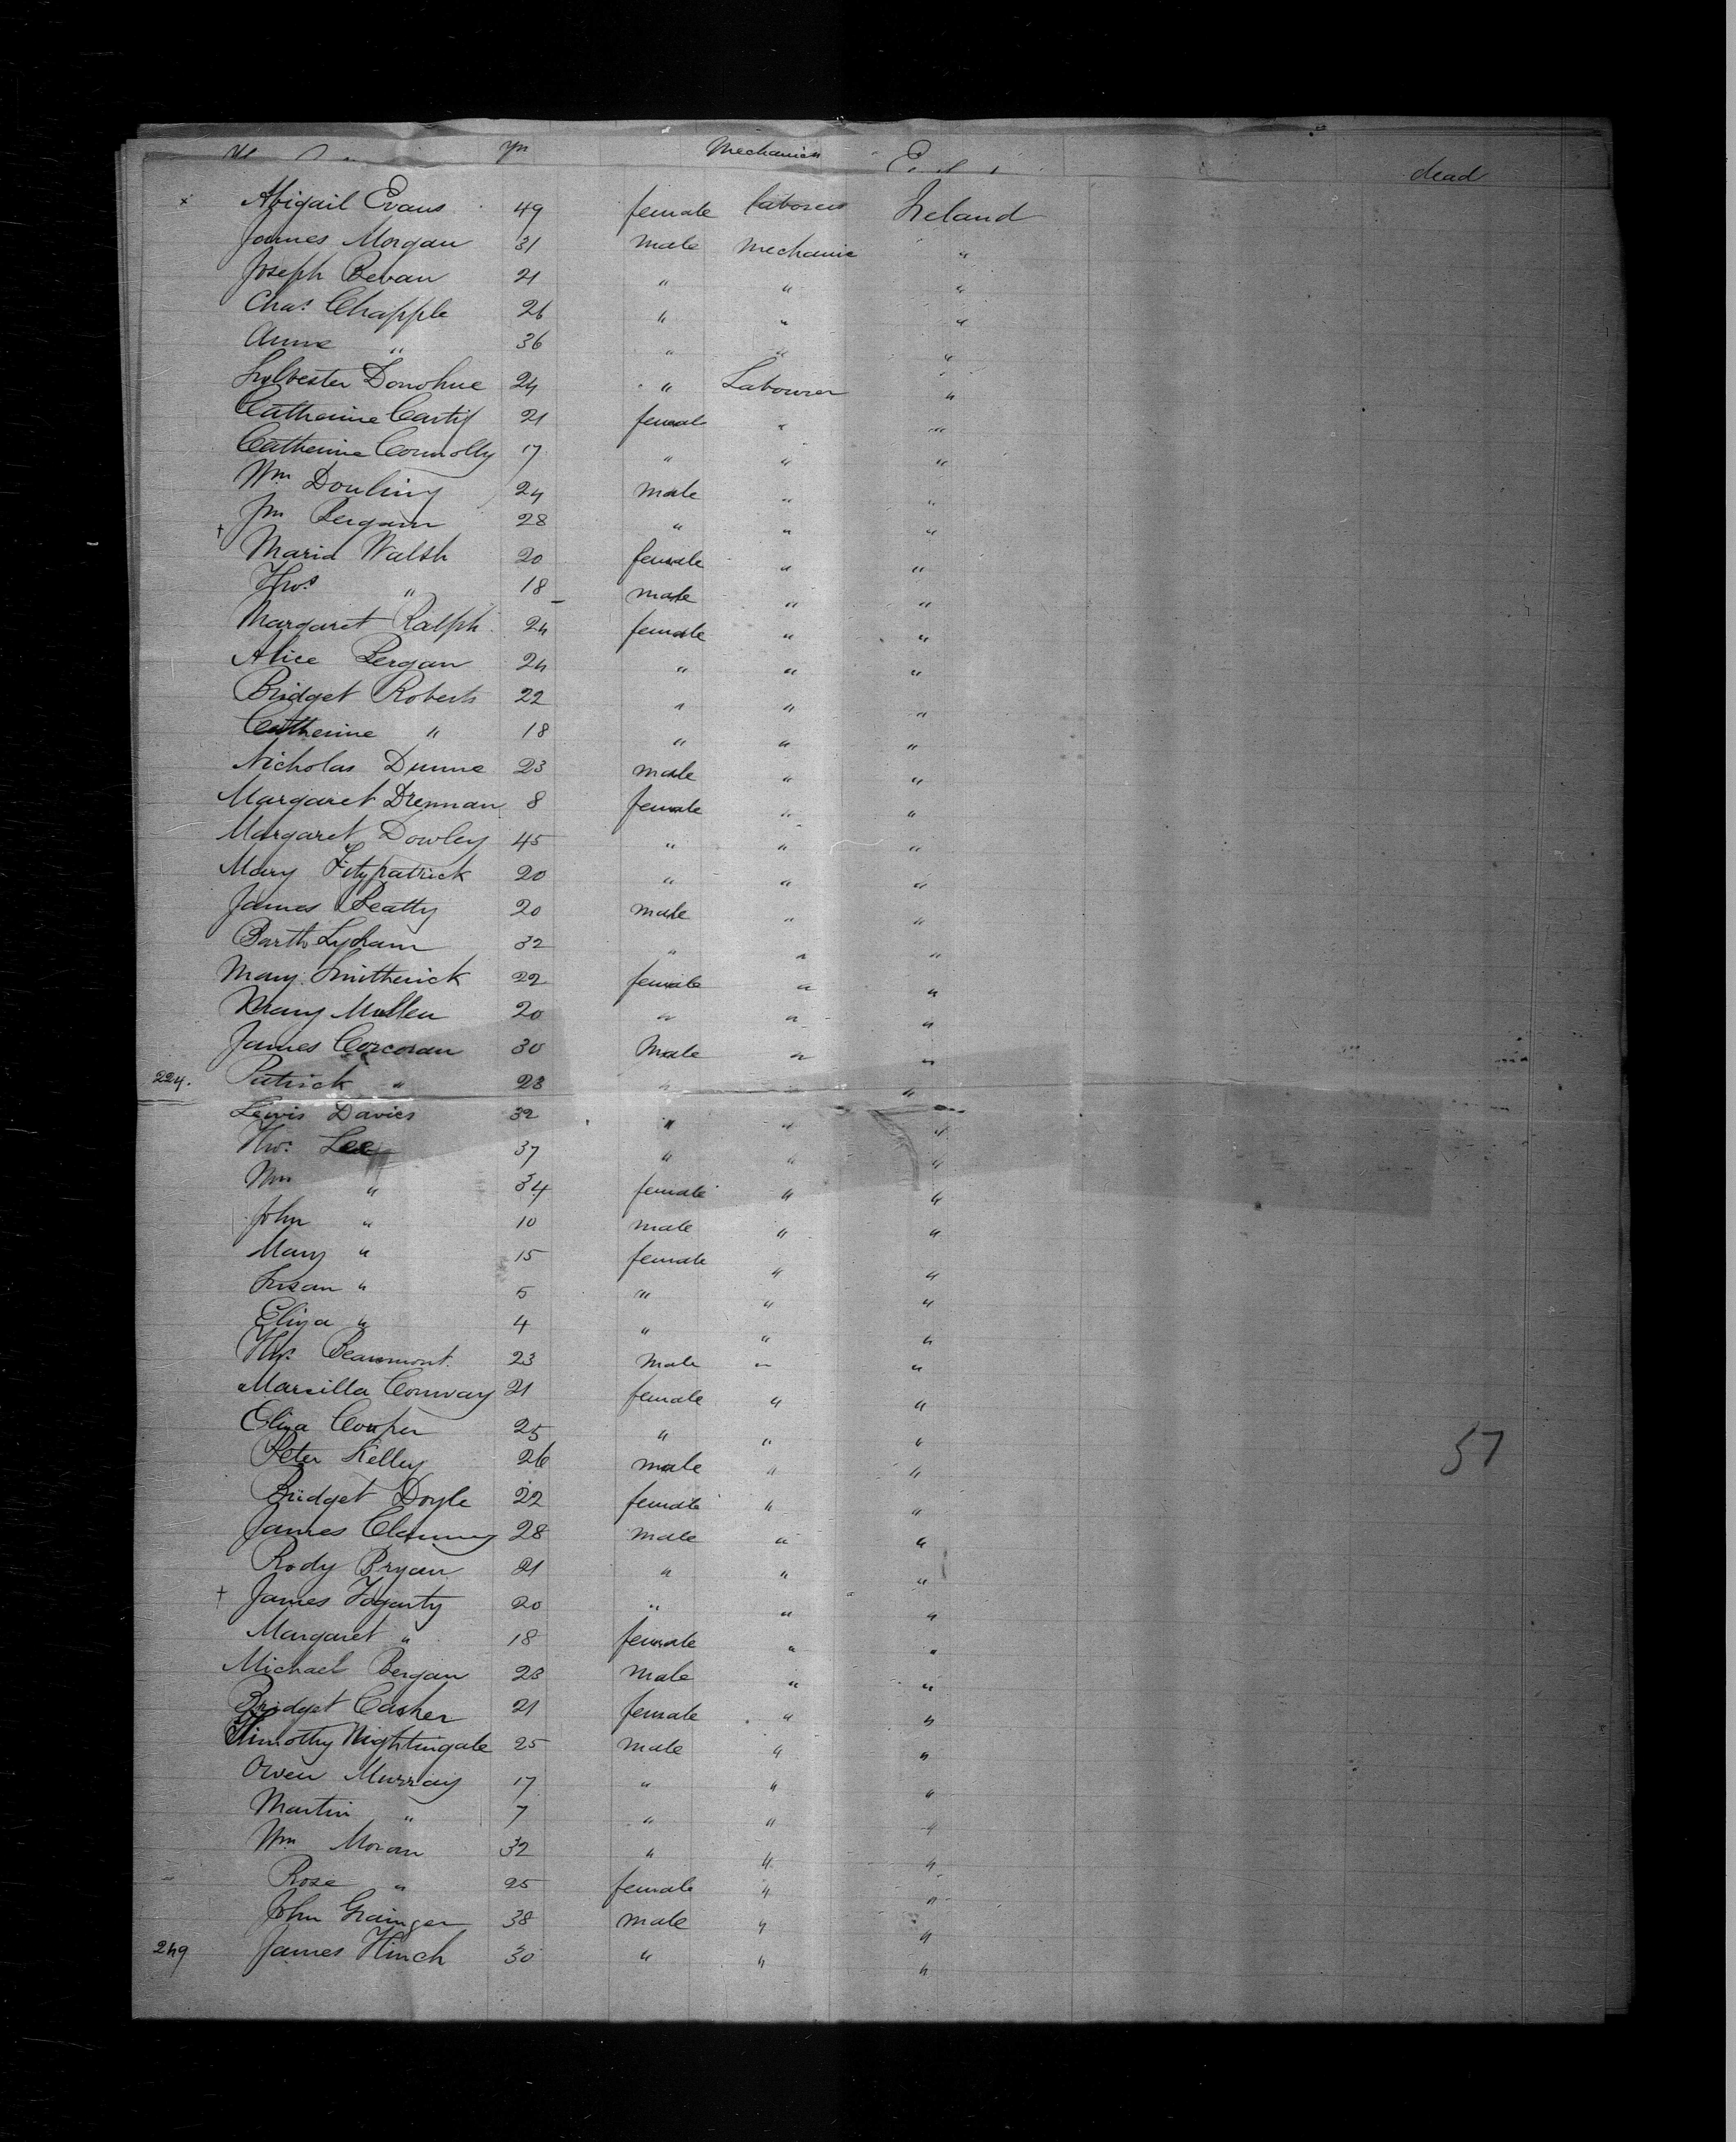 yrs Mechanics dead
x Abigail Evans 49 female laborers Ireland
James Morgan 31 male Mechanic "
Joseph Bevan 21 " " "
Chas. Chapple 26 " " "
Anne " 36 " " "
Sylvester Donohue 24 " Labourer "
Catherine 21 female " "
Catherine Connolly 17 " " "
Wm Dowling 24 male " "
Jno Bergam 28 " " "
+ Maria Walsh 20 female " "
Thos " 18 male " "
Margaret Ralph 24 female " "
Alice Bergan 24 " " "
Bridget Roberts 22 " " "
Catherine " 18 " " "
Nicholas Dunne 23 male " "
Margaret Drennan 8 female " "
Margaret Dowley 45 " " "
Mary Fitzpatrick 20 " " "
James Beatty 20 male " "
Barth Lydham 32 " " "
Mary Smitherick 22 female " "
Mullen 20 " " "
James Corcoran 30 Male " "
224. Patrick " 28 " "
Lewis Davies 32 " " "
Thos. Lee 37 " " "
Mrs " 34 female " "
John " 10 male " "
Mary " 15 female " "
Susan " 5 " " "
Eliza " 4 " " "
Thos. Beaumont. 23 male " "
Marsilla Conway 21 female " "
Eliza Cooper 25 " " "
Peter Kelley 26 male " " 57
Bridget Doyle 22 female " "
James 28 male " "
Rody Bryan 21 " " "
+ James Fogarty 20 " " "
Margaret " 18 female " "
Michael Bergan 23 male " "
Bridget Casher 21 female " "
Timothy Nightingale 25 male " "
Owen Murray 17 " " "
Martin " 7 " " "
Wm Moran 32 " " "
Rose " 25 female " "
John Grainger 38 male " "
249 James Hinch 30 " " "